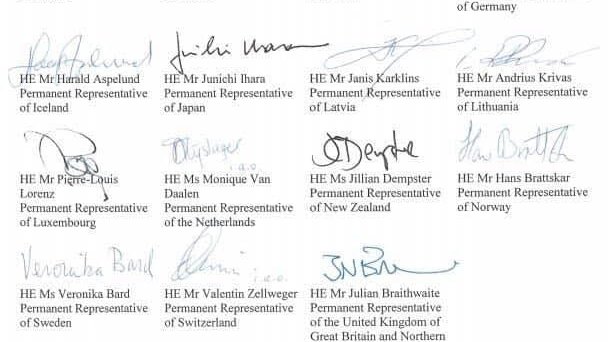 of Germany
HE Mr Harald Aspelund
Permanent Representative
of Iceland
HE Mr Junichi Ihara
Permanent Representative
of Japan
HE Mr Janis Karklins
Permanent Representative
of Latvia
HE Mr Andrius Krivas
Permanent Representative
of Lithuania
HE Mr Pierre-Louis
Lorenz
Permanent Representative
of Luxembourg
i.a.o.
HE Ms Monique Van
Daalen
Permanent Representative
of the Netherlands
HE Ms Jillian Dempster
Permanent Representative
of New Zealand
HE Mr Hans Brattskar
Permanent Representative
of Norway
Veronika Bard
HE Ms Veronika Bard
Permanent Representative
of Sweden
i.a.o.
HE Mr Valentin Zellweger
Permanent Representative
of Switzerland
HE Mr Julian Braithwaite
Permanent Representative
of the United Kingdom of
Great Britain and Northern